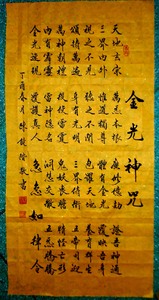 金光神咒
天地玄宗 萬炁本根 廣修億劫 證吾神通
三界內外 惟道獨尊 體有金光 覆映吾身
視之不見 聽之不聞 包羅天地 養育群生
誦持萬遍 身有光明 三界侍衛 五帝司迎
萬神朝禮 役使雷霆 鬼妖喪膽 精怪亡形
內有霹靂 雷神隱名 洞慧交徹 五炁騰騰
金光速現 覆護真人 急急如律令
丁酉春月 陳
敬書